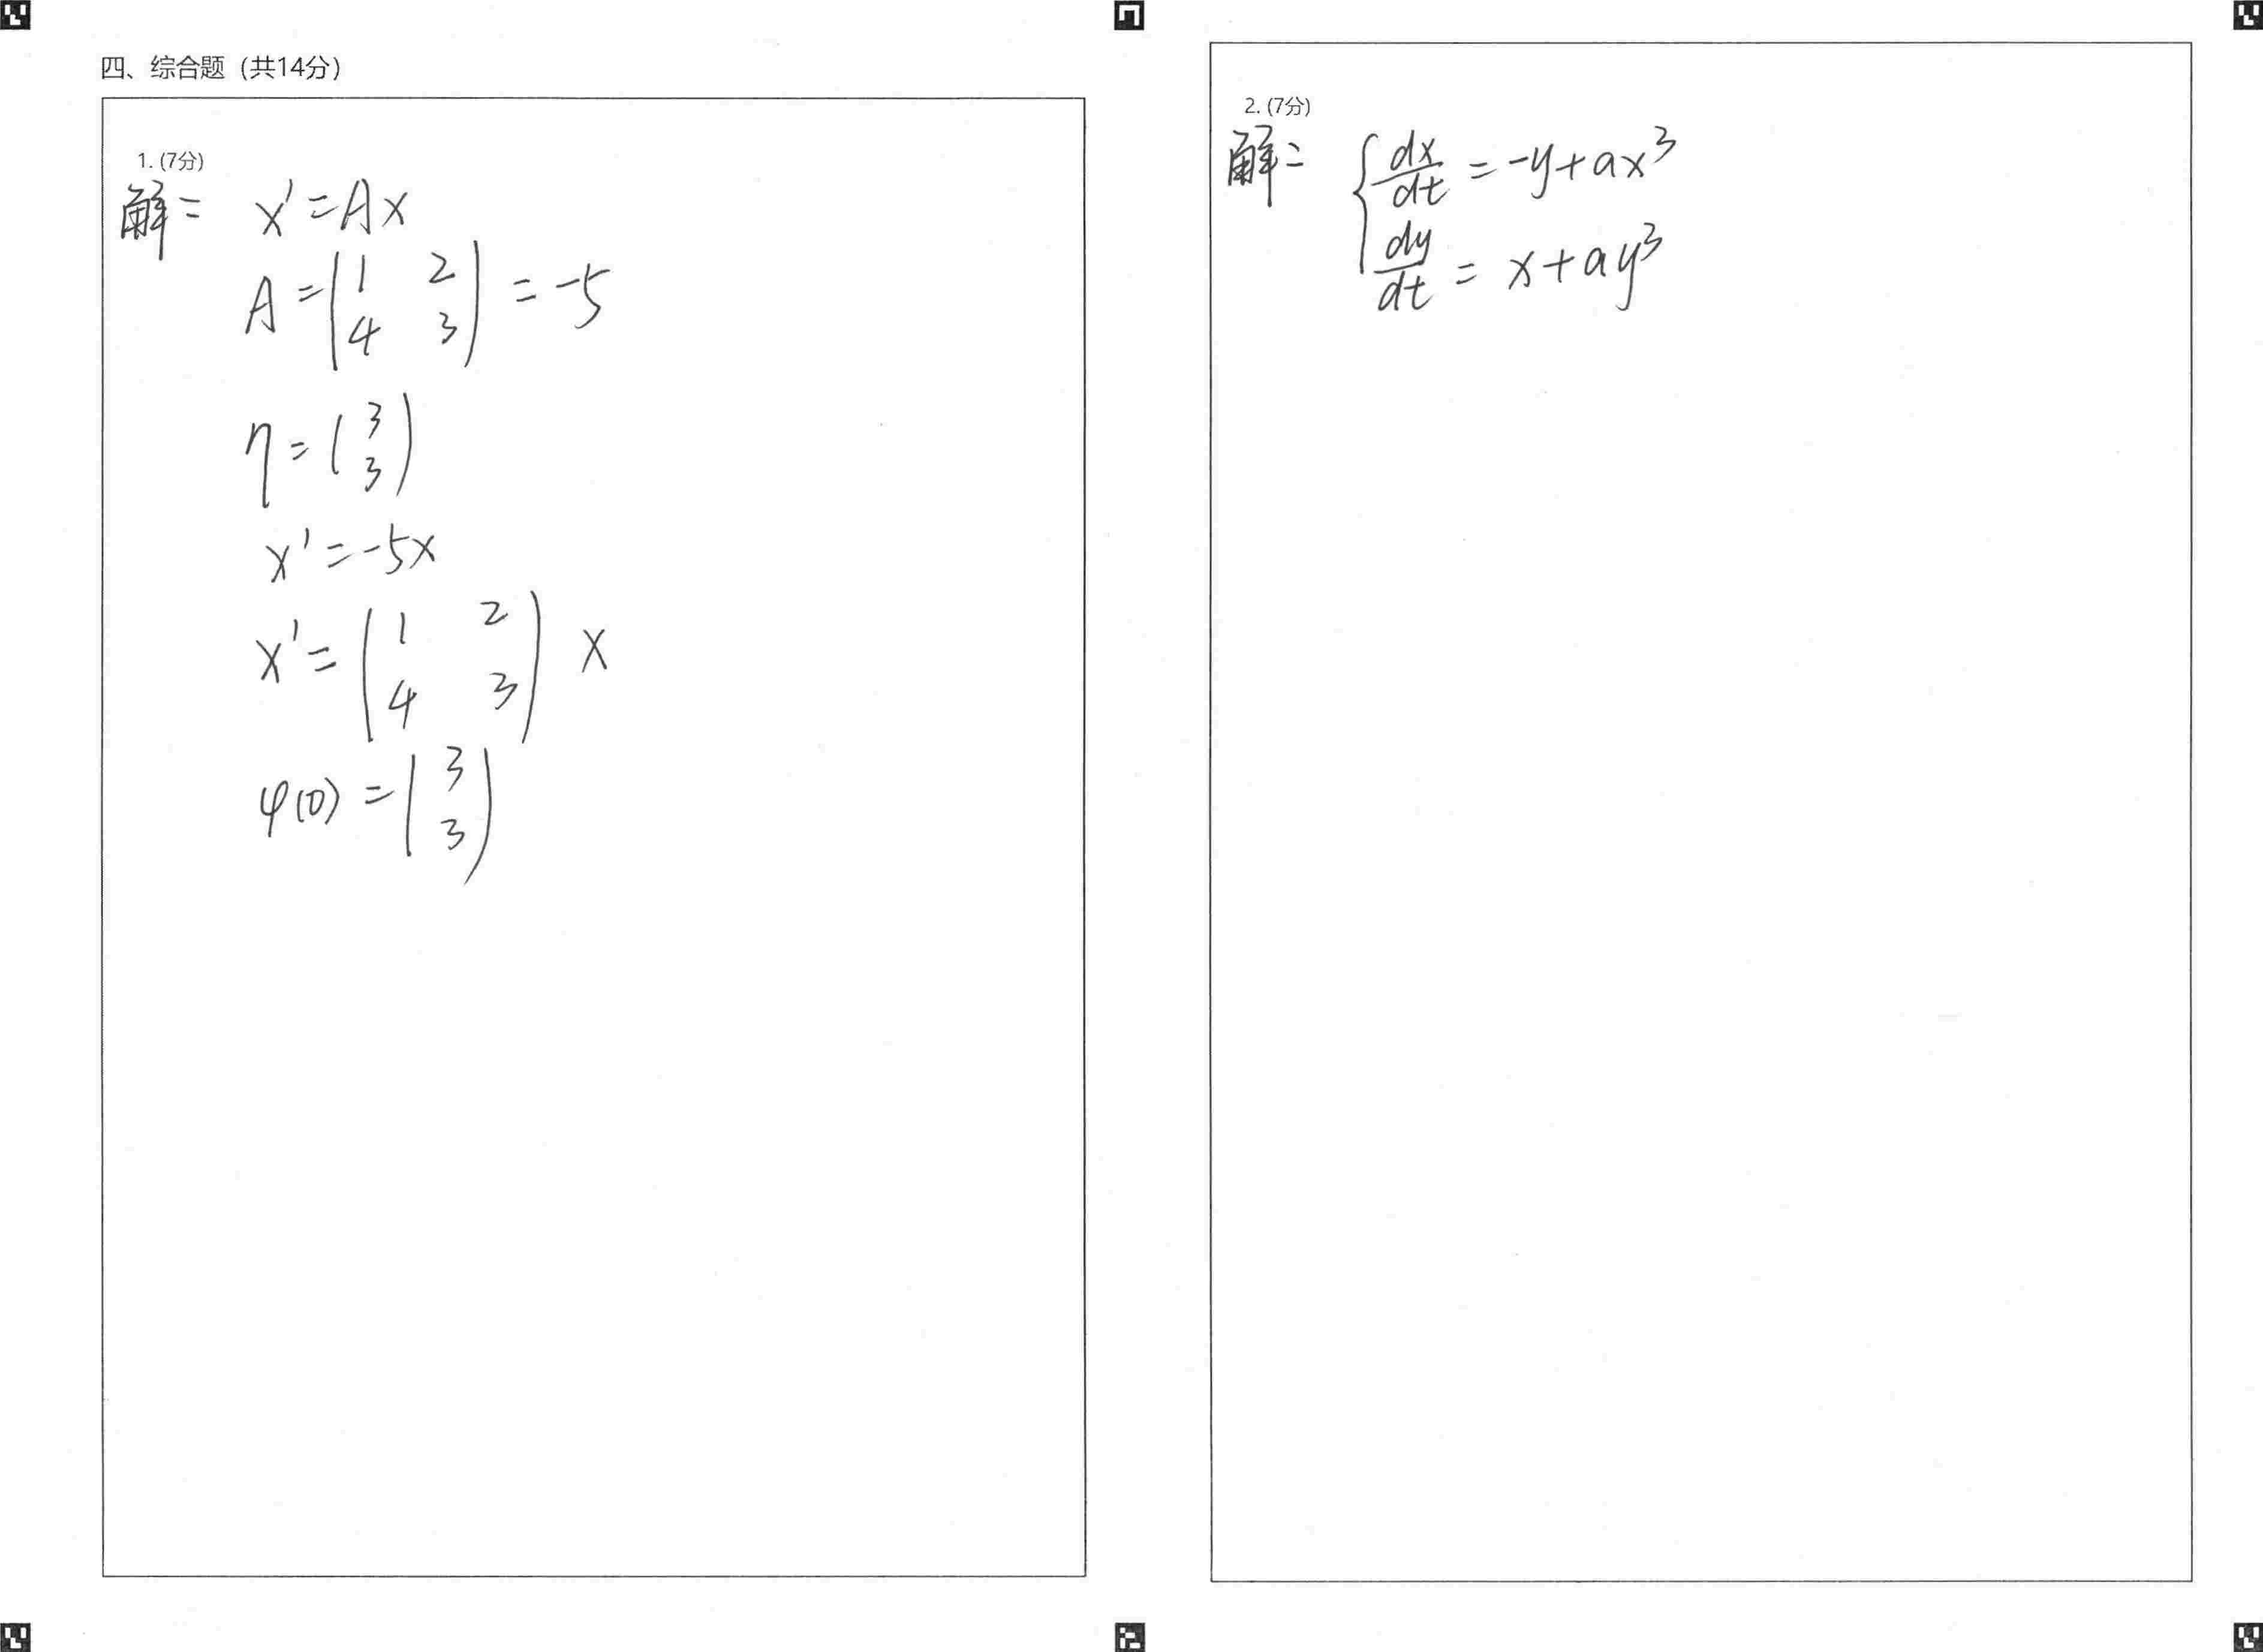 四、综合题（共14分）
1. (7分)
解： x' = Ax
A = ( 1 2
4 3 ) = -5
η = ( 3
3 )
x' = -5x
x' = ( 1 2
4 3 ) x
φ(0) = ( 3
3 )
2. (7分)
解： { dx/dt = -y + ax³
dy/dt = x + ay³